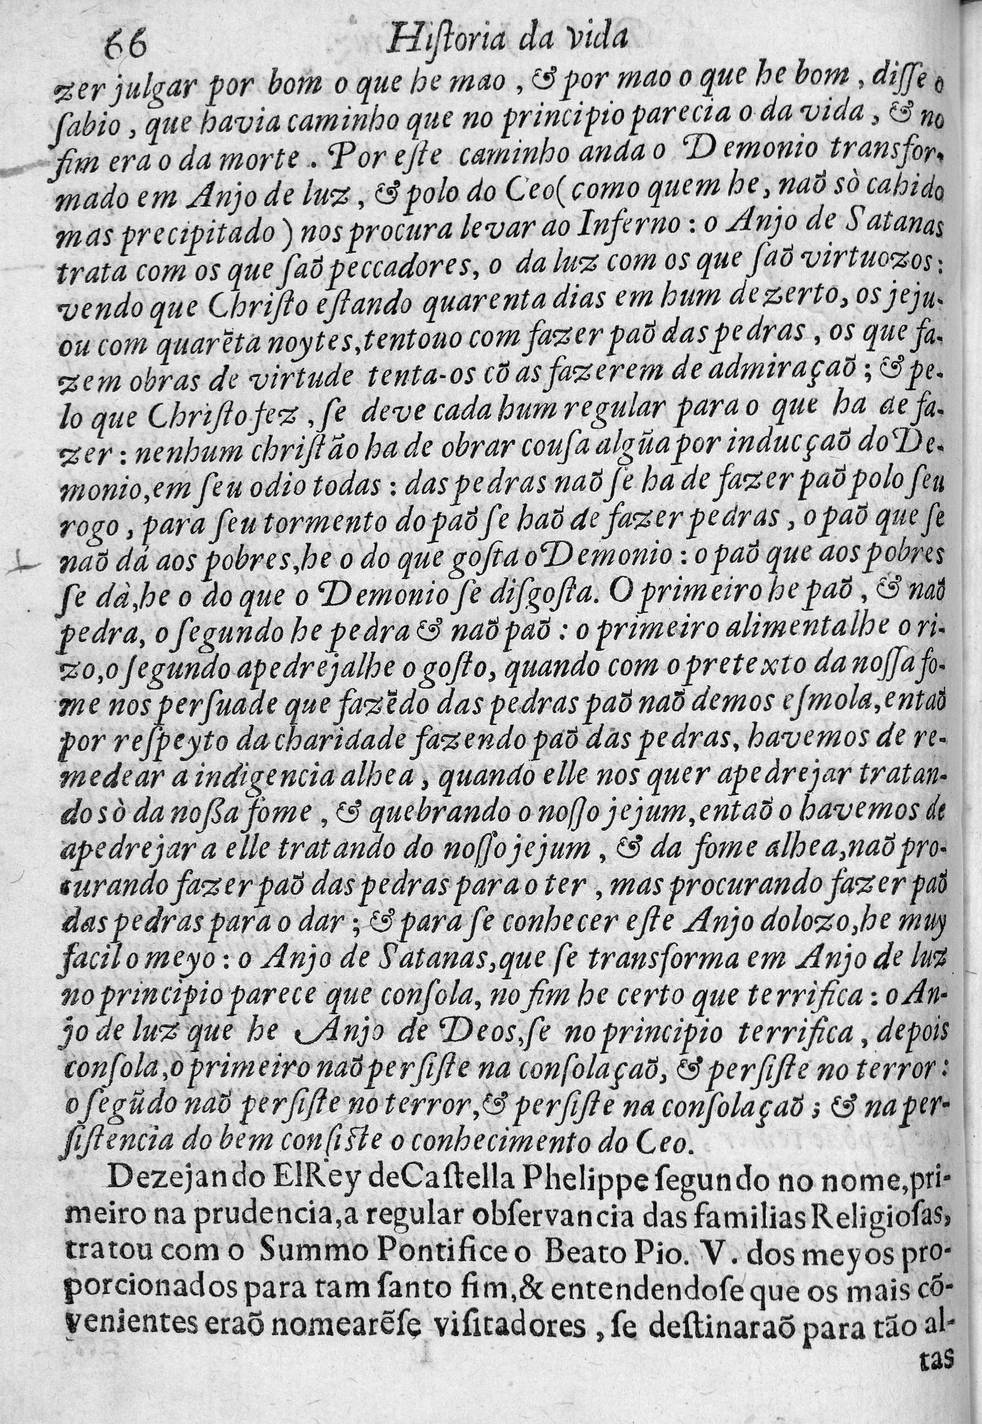 66 Hiſtoria da vida
zer julgar por bom o que he mao, & por mao o que he bom, diſſe o
ſabio, que havia caminho que no principio parecia o da vida, & no
fim era o da morte. Por eſte caminho anda o Demonio transfor-
mado em Anjo de luz, & polo do Ceo (como quem he, naõ sò cahido
mas precipitado) nos procura levar ao Inferno: o Anjo de Satanas
trata com os que ſaõ peccadores, o da luz com os que ſaõ virtuozos:
vendo que Chriſto eſtando quarenta dias em hum dezerto, os jeju-
ou com quarẽta noytes, tentouo com fazer paõ das pedras, os que fa-
zem obras de virtude tenta-os cõ as fazerem de admiraçaõ; & pe-
lo que Chriſto fez, ſe deve cada hum regular para o que ha de fa-
zer: nenhum chriſtão ha de obrar couſa algũa por inducçaõ do De-
monio, em ſeu odio todas: das pedras naõ ſe ha de fazer paõ polo ſeu
rogo, para ſeu tormento do paõ ſe haõ de fazer pedras, o paõ que ſe
naõ dá aos pobres, he o do que goſta o Demonio: o paõ que aos pobres
ſe dà, he o do que o Demonio ſe diſgoſta. O primeiro he paõ, & naõ
pedra, o ſegundo he pedra & naõ paõ: o primeiro alimentalhe o ri-
zo, o ſegundo apedrejalhe o goſto, quando com o pretexto da noſſa fo-
me nos perſuade que fazẽdo das pedras paõ naõ demos eſmola, entaõ
por reſpeyto da charidade fazendo paõ das pedras, havemos de re-
medear a indigencia alhea, quando elle nos quer apedrejar tratan-
do sò da noßa fome, & quebrando o noſſo jejum, entaõ o havemos de
apedrejar a elle tratando do noſſo jejum, & da fome alhea, naõ pro-
curando fazer paõ das pedras para o ter, mas procurando fazer paõ
das pedras para o dar; & para ſe conhecer eſte Anjo dolozo, he muy
facil o meyo: o Anjo de Satanas, que ſe transforma em Anjo de luz
no principio parece que conſola, no fim he certo que terrifica: o An-
jo de luz que he Anjo de Deos, ſe no principio terrifica, depois
conſola, o primeiro naõ perſiſte na conſolaçaõ, & perſiſte no terror:
o ſegũdo naõ perſiſte no terror, & perſiſte na conſolaçaõ; & na per-
ſiſtencia do bem conſiſte o conhecimento do Ceo.
Dezejando ElRey de Caſtella Phelippe ſegundo no nome, pri-
meiro na prudencia, a regular obſervancia das familias Religioſas,
tratou com o Summo Pontifice o Beato Pio. V. dos meyos pro-
porcionados para tam ſanto fim, & entendendoſe que os mais cõ-
venientes eraõ nomearẽſe viſitadores, ſe deſtinaraõ para tão al-
tas